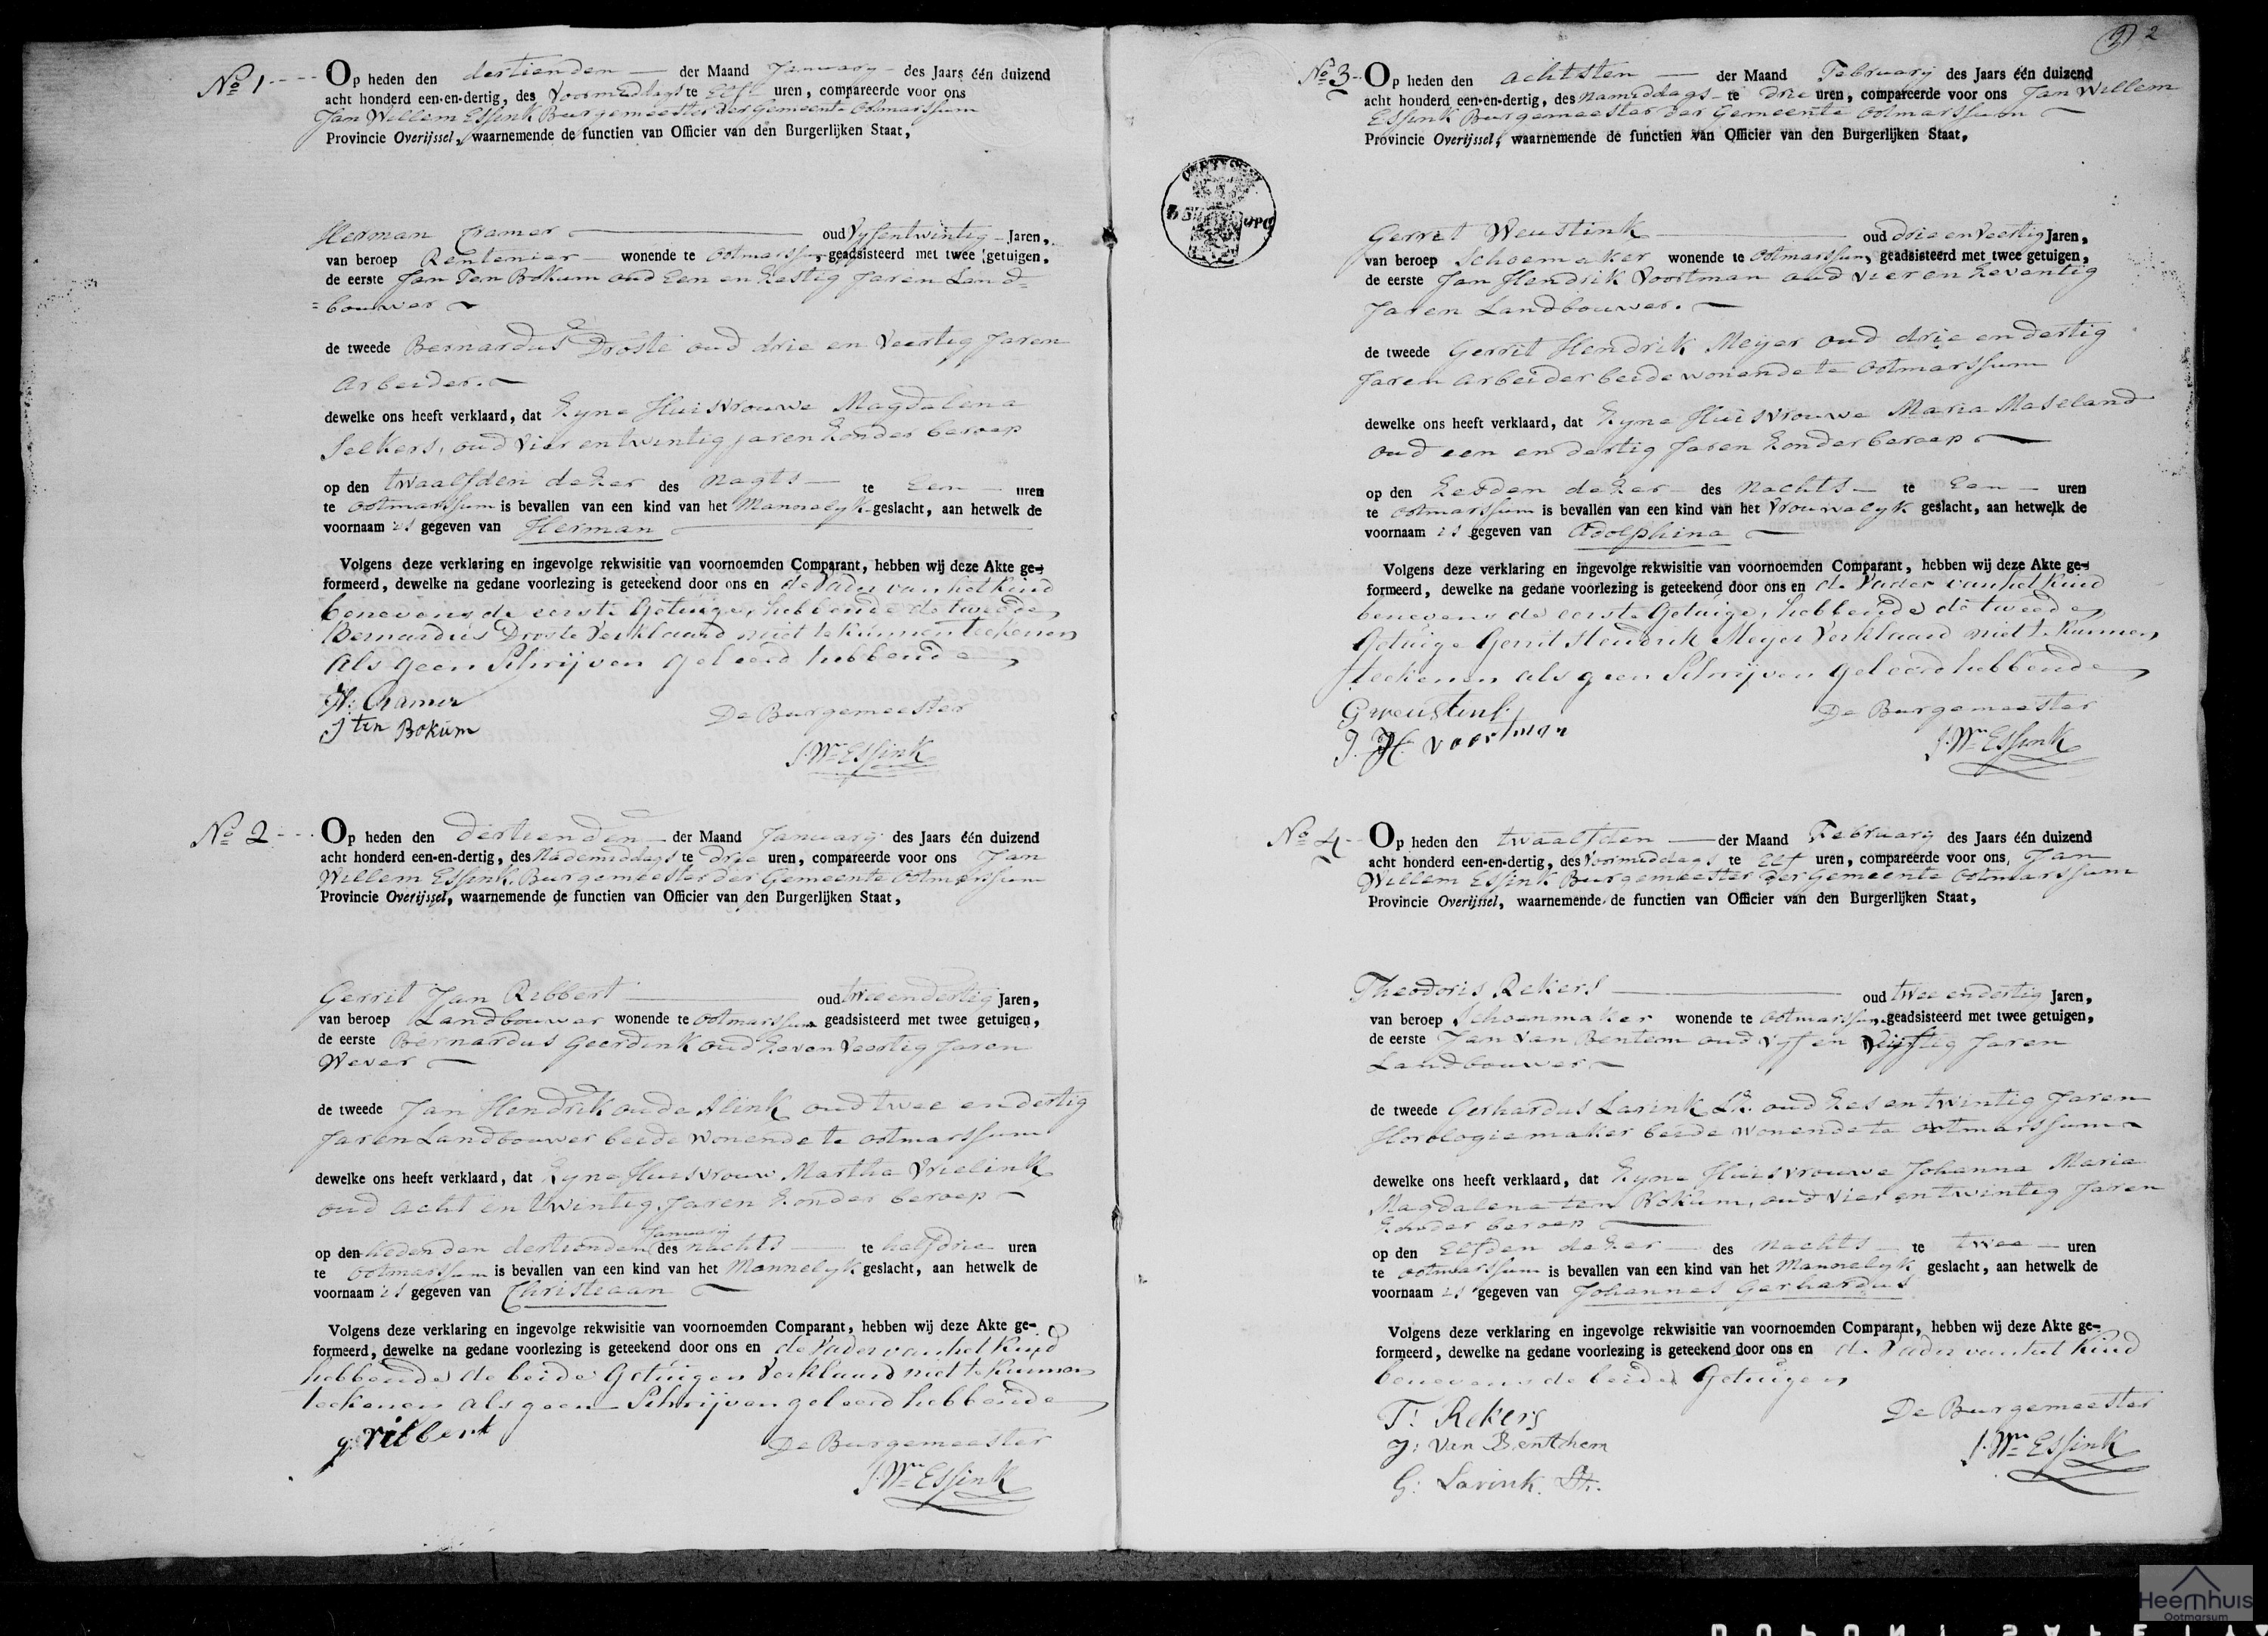 No 1
Op heden den dertienden der Maand January des Jaars één duizend
acht honderd een-en-dertig, des Voormiddags te Elf uren, compareerde voor ons
Jan Willem Essink Burgemeester der Gemeente Ootmarssum
Provincie Overijssel, waarnemende de functien van Officier van den Burgerlijken Staat,
Herman Cramer oud Vyfentwintig Jaren,
van beroep Rentenier wonende te Ootmarssum, geadsisteerd met twee getuigen,
de eerste Jan Ten Bokum oud Een en Zestig Jaren Land=
=bouwer
de tweede Bernardus Droste oud drie en Veertig Jaren
Arbeider.
dewelke ons heeft verklaard, dat Zyne Huisvrouwe Magdalena
Selkers, oud Vier en twintig jaren Zonder beroep
op den twaalfden dezer des Nagts te Een uren
te Ootmarssum is bevallen van een kind van het Mannelyk geslacht, aan hetwelk de
voornaam is gegeven van Herman
Volgens deze verklaring en ingevolge rekwisitie van voornoemden Comparant, hebben wij deze Akte ge-
formeerd, dewelke na gedane voorlezing is geteekend door ons en de Vader van het Kind
benevens de eerste Getuige, hebbende de tweede
Bernardus Droste Verklaard niet te kunnen teekenen
als geen Schrijven geleerd hebbende
H: Cramer
J ten Bokum
De Burgemeester
J. Wm Essink
No 2
Op heden den dertienden der Maand January des Jaars één duizend
acht honderd een-en-dertig, des Nademiddags te drie uren, compareerde voor ons Jan
Willem Essink Burgemeester der Gemeente Ootmarssum
Provincie Overijssel, waarnemende de functien van Officier van den Burgerlijken Staat,
Gerrit Jan Ribbert oud twee en dertig Jaren,
van beroep Landbouwer wonende te Ootmarssum geadsisteerd met twee getuigen,
de eerste Bernardus Geerdink oud Zeven Veertig Jaren
Wever
de tweede Jan Hendrik oude Alink oud twee en dertig
Jaren Landbouwer beide wonende te Ootmarssum
dewelke ons heeft verklaard, dat Zyne Huisvrouw Martha Vrielink
oud acht en twintig Jaren Zonder beroep
op den heden den dertienden January des nachts te half drie uren
te Ootmarssum is bevallen van een kind van het Mannelyk geslacht, aan hetwelk de
voornaam is gegeven van Christiaan
Volgens deze verklaring en ingevolge rekwisitie van voornoemden Comparant, hebben wij deze Akte ge-
formeerd, dewelke na gedane voorlezing is geteekend door ons en de Vader van het Kind
hebbende de beide Getuigen Verklaard niet te Kunnen
teekenen als geen Schrijven geleerd hebbende
g: ribbert
De Burgemeester
J. Wm Essink
2
No 3
Op heden den achtsten der Maand February des Jaars één duizend
acht honderd een-en-dertig, des Namiddags te drie uren, compareerde voor ons Jan Willem
Essink Burgemeester der Gemeente Ootmarssum
Provincie Overijssel, waarnemende de functien van Officier van den Burgerlijken Staat,
Gerrit Weustink oud drie en Veertig Jaren,
van beroep Schoemaker wonende te Ootmarssum, geadsisteerd met twee getuigen,
de eerste Jan Hendrik Voortman oud vier en Zeventig
Jaren Landbouwer.
de tweede Gerrit Hendrik Meyer oud drie en dertig
Jaren arbeider beide wonende te Ootmarssum
dewelke ons heeft verklaard, dat Zyne Huisvrouwe Maria Maseland
oud een en dertig Jaren Zonder beroep
op den Zesden dezer des Nachts te Een uren
te Ootmarssum is bevallen van een kind van het Vrouwelyk geslacht, aan hetwelk de
voornaam is gegeven van Adolphina
Volgens deze verklaring en ingevolge rekwisitie van voornoemden Comparant, hebben wij deze Akte ge-
formeerd, dewelke na gedane voorlezing is geteekend door ons en de Vader van het Kind
benevens de eerste Getuige, hebbende de tweede
Getuige Gerrit Hendrik Meyer Verklaard niet te Kunnen
teekenen als geen Schrijven geleerd hebbende
G weustink
J. H. voortman
De Burgemeester
J. Wm Essink
No 4
Op heden den twaalfden der Maand February des Jaars één duizend
acht honderd een-en-dertig, des Voormiddags te Elf uren, compareerde voor ons, Jan
Willem Essink Burgemeester der Gemeente Ootmarssum
Provincie Overijssel, waarnemende de functien van Officier van den Burgerlijken Staat,
Theodoris Rekers oud twee en dertig Jaren,
van beroep Schoenmaker wonende te Ootmarssum, geadsisteerd met twee getuigen,
de eerste Jan Van Bentem oud Vyf en Vyftig Jaren
Landbouwer
de tweede Gerhardus Larink oud Zes en twintig Jaren
Horologiemaker beide wonende te Ootmarssum
dewelke ons heeft verklaard, dat Zyne Huisvrouwe Johanna Maria
Magdalena ten Bokum, oud Vier en twintig Jaren
Zonder beroep
op den Elfden dezer des Nachts te twee uren
te Ootmarssum is bevallen van een kind van het Mannelyk geslacht, aan hetwelk de
voornaam is gegeven van Johannes Gerhardus
Volgens deze verklaring en ingevolge rekwisitie van voornoemden Comparant, hebben wij deze Akte ge-
formeerd, dewelke na gedane voorlezing is geteekend door ons en de Vader van het Kind
benevens de beide Getuigen
T: Rekers
J: Van Benthem
G: Larink
De Burgemeester
J. Wm Essink
Heemhuis
Ootmarsum